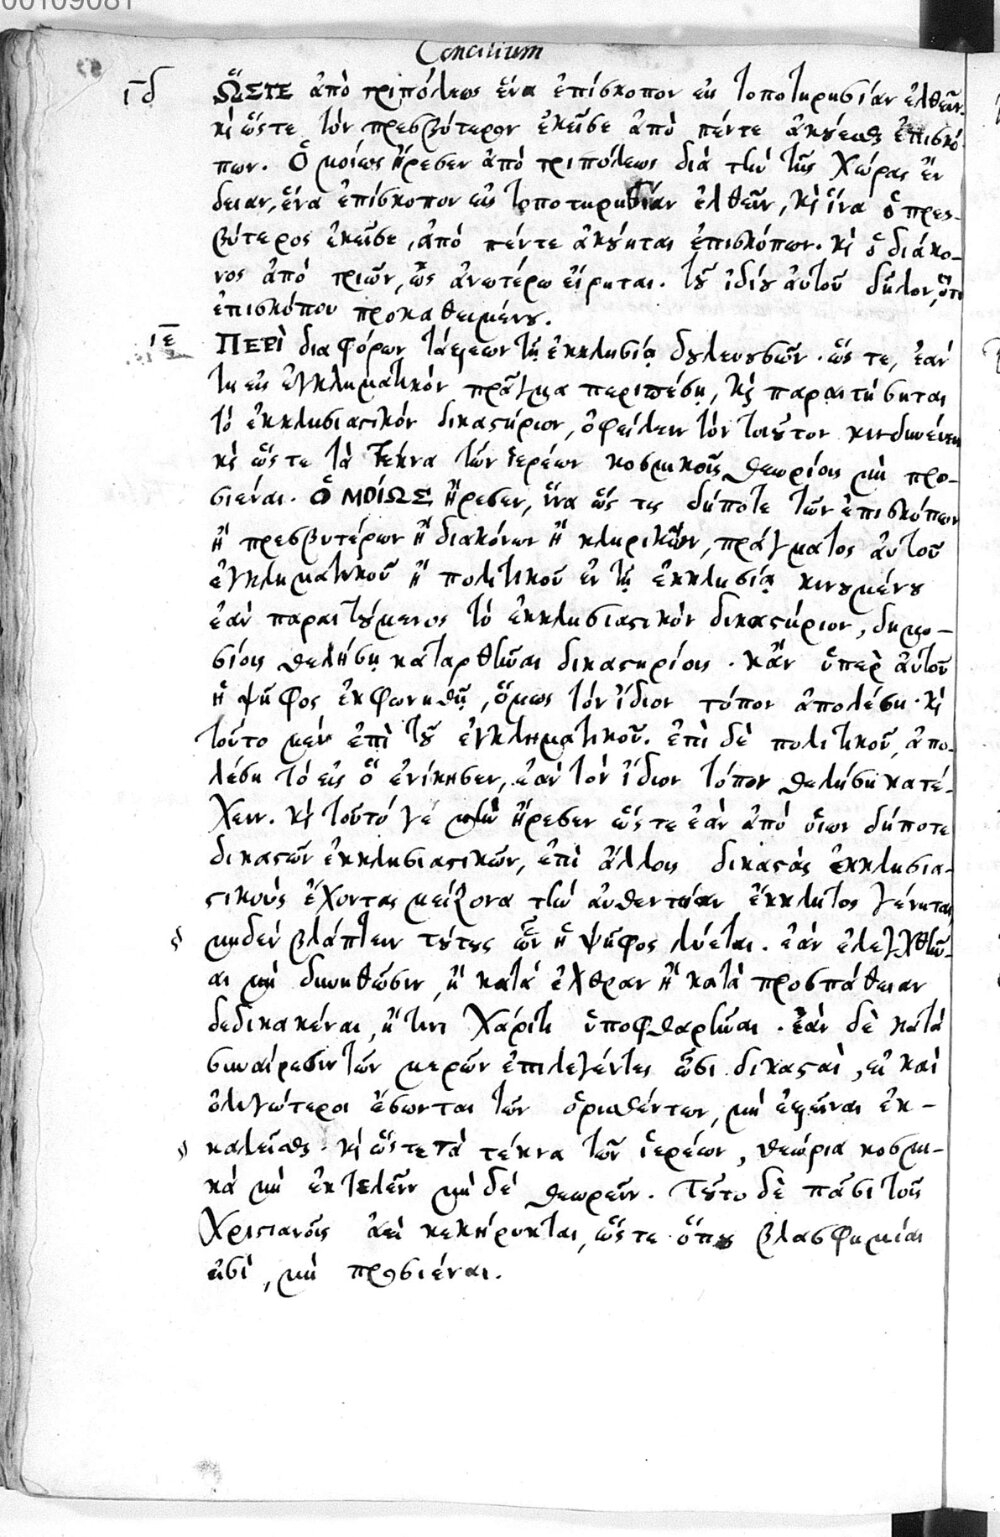 00109081
Concilium
ιδ ὭΣΤΕ ἀπὸ τριπόλεως ἕνα ἐπίσκοπον εἰς τοποτηρησίαν ἐλθεῖν.
κὶ ὥστε τὸν πρεσβύτερον ἐκεῖσε ἀπὸ πέντε ἀκούεσθαι ἐπισκό-
πων. Ὁμοίως ἤρεσεν ἀπὸ τριπόλεως διὰ τὴν τῆς χώρας ἔν
δειαν, ἕνα ἐπίσκοπον εἰς τοποτηρησίαν ἐλθεῖν, κὶ ἵνα ὁ πρεσ-
βύτερος ἐκεῖσε, ἀπὸ πέντε ἀκούηται ἐπισκόπων. κὶ ὁ διάκο-
νος ἀπὸ τριῶν, ὡς ἀνωτέρω εἴρηται. τοῦ ἰδίου αὐτοῦ δῆλον, ὅτι
ἐπισκόπου προκαθειμένου.
ιε ΠΕΡὶ διαφόρων τάξεων τῇ ἐκκλησίᾳ δουλευουσῶν. ὥς τε, ἐάν
τις εἰς ἐγκληματικὸν πρᾶγμα περιπέσῃ, κὶ παραιτήσηται
τὸ ἐκκλησιαστικὸν δικαστήριον, ὀφείλειν τὸν τοιοῦτον κινδυνεύειν
κὶ ὥς τε τὰ τέκνα τῶν ἱερέων κοσμικοῖς θεωρίοις μὴ προ-
σιέναι. ὉΜΟΊΩΣ ἤρεσεν, ἵνα ὥς τις δήποτε τῶν ἐπισκόπων
ἢ πρεσβυτέρων ἢ διακόνων ἢ κληρικῶν, πράγματος αὐτοῦ
ἐγκληματικοῦ ἢ πολιτικοῦ ἐν τῇ ἐκκλησίᾳ κινουμένου
ἐὰν παραιτούμενος τὸ ἐκκλησιαστικὸν δικαστήριον, δημο-
σίοις θελήσῃ καταρθῶσαι δικαστηρίοις. κἂν ὑπὲρ αὐτοῦ
ἡ ψῆφος ἐκφωνηθῇ, ὅμως τὸν ἴδιον τόπον ἀπολέσῃ. κὶ
τοῦτο μὲν ἐπὶ τοῦ ἐγκληματικοῦ. ἐπὶ δὲ πολιτικοῦ, ἀπο-
λέσῃ τὸ εἰς ὃ ἐνίκησεν, ἐὰν τὸν ἴδιον τόπον θελήσῃ κατέ-
χειν. κὶ τοῦτό γε μὴν ἤρεσεν ὥς τε ἐὰν ἀπὸ οἵων δήποτε
δικαστῶν ἐκκλησιαστικῶν, ἐπὶ ἄλλους δικαστὰς ἐκκλησια-
στικοὺς ἔχοντας μείζονα τὴν αὐθεντίαν ἔκκλητος γένηται
μηδὲν βλάπτειν τούτους ὧν ἡ ψῆφος λύεται. ἐὰν ἐλεγχθῆν-
αι μὴ δυνηθῶσιν, ἢ κατὰ ἔχθραν ἢ κατὰ προσπάθειαν
δεδικακέναι, ἤ τινι χάριτι ὑποφθαρῆναι. ἐὰν δὲ κατὰ
συναίρεσιν τῶν μερῶν ἐπιλεγέντες ὦσι δικασταὶ, εἰ καὶ
ὀλιγώτεροι ἔσωνται τῶν ὁρισθέντων, μὴ ἐξεῖναι ἐκ-
καλεῖσθαι. κὶ ὥς τε τὰ τέκνα τῶν ἱερέων, θεώρια κοσμι-
κὰ μὴ ἐκτελεῖν μὴ δὲ θεωρεῖν. τοῦτο δὲ πᾶσι τοῖς
χριστιανοῖς ἀεὶ κεκήρυκται, ὥς τε ὅπου βλασφημίαι
εἰσὶ, μὴ προσιέναι.